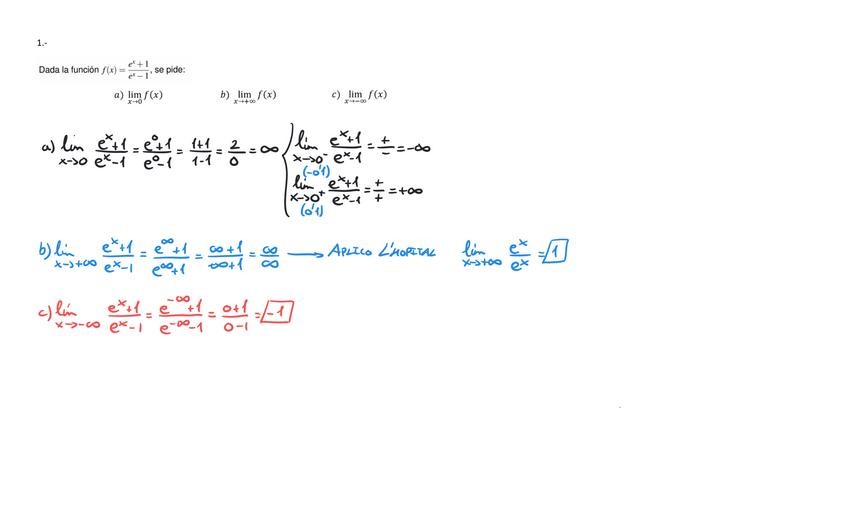 1.-
Dada la función f(x) = (e^x + 1)/(e^x − 1), se pide:
a) lim x→0 f(x) b) lim x→+∞ f(x) c) lim x→−∞ f(x)
a) lím x→0 (e^x+1)/(e^x−1) = (e^0+1)/(e^0−1) = (1+1)/(1−1) = 2/0 = ∞ { lím x→0^- (e^x+1)/(e^x−1) = +/− = −∞
(−0'1)
lím x→0^+ (e^x+1)/(e^x−1) = +/+ = +∞
(0'1)
b) lím x→+∞ (e^x+1)/(e^x−1) = (e^∞+1)/(e^∞+1) = (∞+1)/(∞+1) = ∞/∞ → APLICO L'HOPITAL lím x→+∞ e^x/e^x = 1
c) lím x→−∞ (e^x+1)/(e^x−1) = (e^−∞+1)/(e^−∞−1) = (0+1)/(0−1) = −1